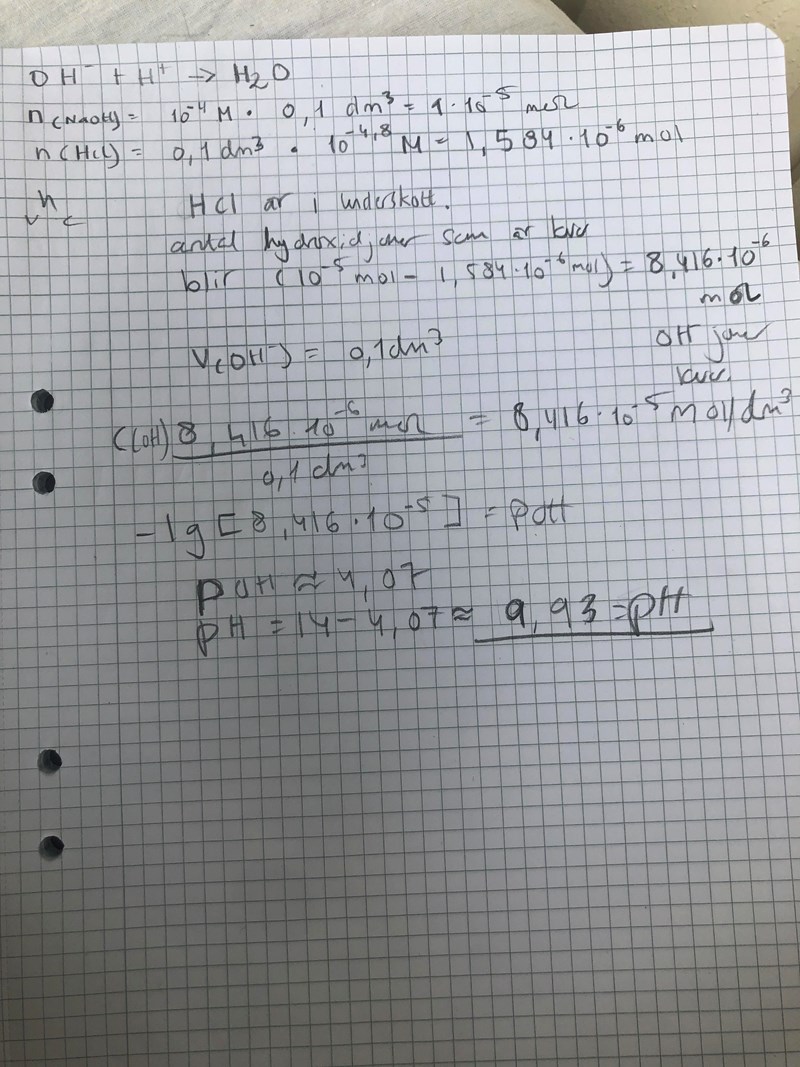 OH⁻ + H⁺ → H₂O
n(NaOH) = 10⁻⁴ M · 0,1 dm³ = 1·10⁻⁵ mol
n(HCl) = 0,1 dm³ · 10⁻⁴,⁸ M = 1,584·10⁻⁶ mol
n
v c
HCl är i underskott.
antal hydroxidjoner som är kvar
blir (10⁻⁵ mol - 1,584·10⁻⁶ mol) = 8,416·10⁻⁶
mol
OH joner
kvar.
V(OH⁻) = 0,1 dm³
C(OH) 8,416·10⁻⁶ mol = 8,416·10⁻⁵ mol/dm³
0,1 dm³
-lg[8,416·10⁻⁵] = pOH
pOH ≈ 4,07
pH = 14-4,07 ≈ 9,93 = pH